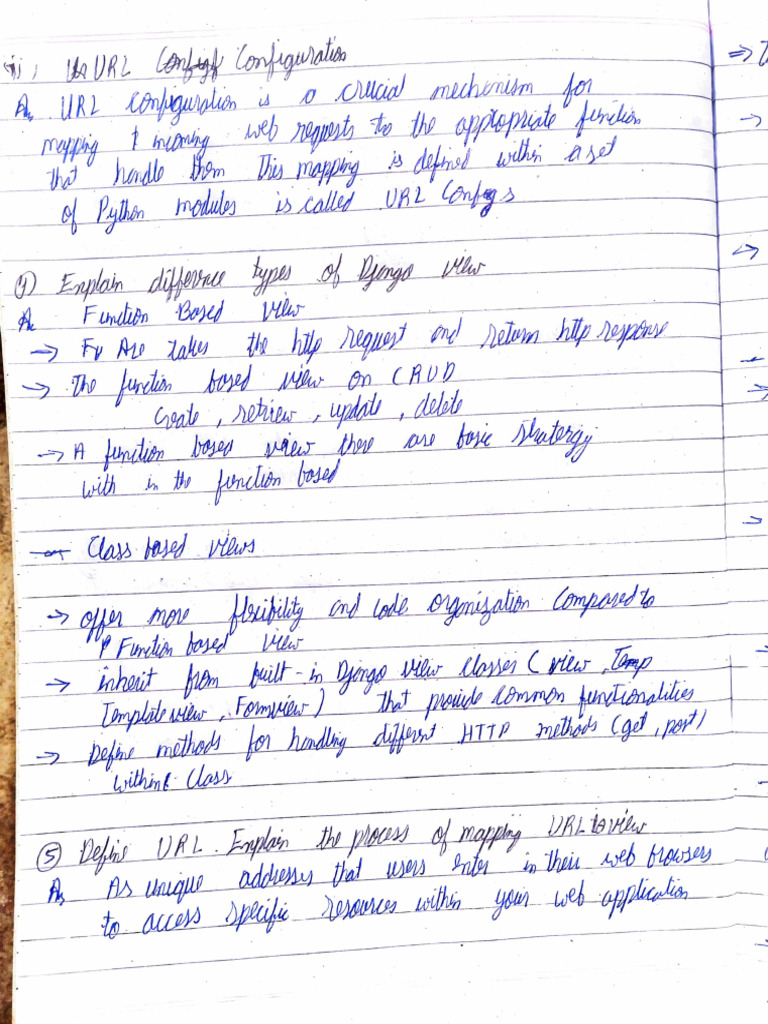 ii, URL Configuration
Ans URL configuration is a crucial mechenism for
mapping incoming web requests to the appropriate function
that handle them This mapping is defined within a set
of Python modules is called URL Configs
4) Explain difference types of Django view
A Function Based View
→ Fv Are takes the http request and return http response
→ The function based view on CRUD
Create, retrieve, update, delete
→ A function based view there are basic stratergy
with in the function based
Class based views
→ offer more flexibility and code organization Compared to
Function based View
→ inherit from built-in Django view classes (view, Temp
Template view, Formview) that provide common functionalities
→ Define methods for handling different HTTP methods (get, post)
within Class
5) Define URL. Explain the process of mapping URL to view
Ans As unique addresses that users enter in their web browsers
to access specific resources within your web application